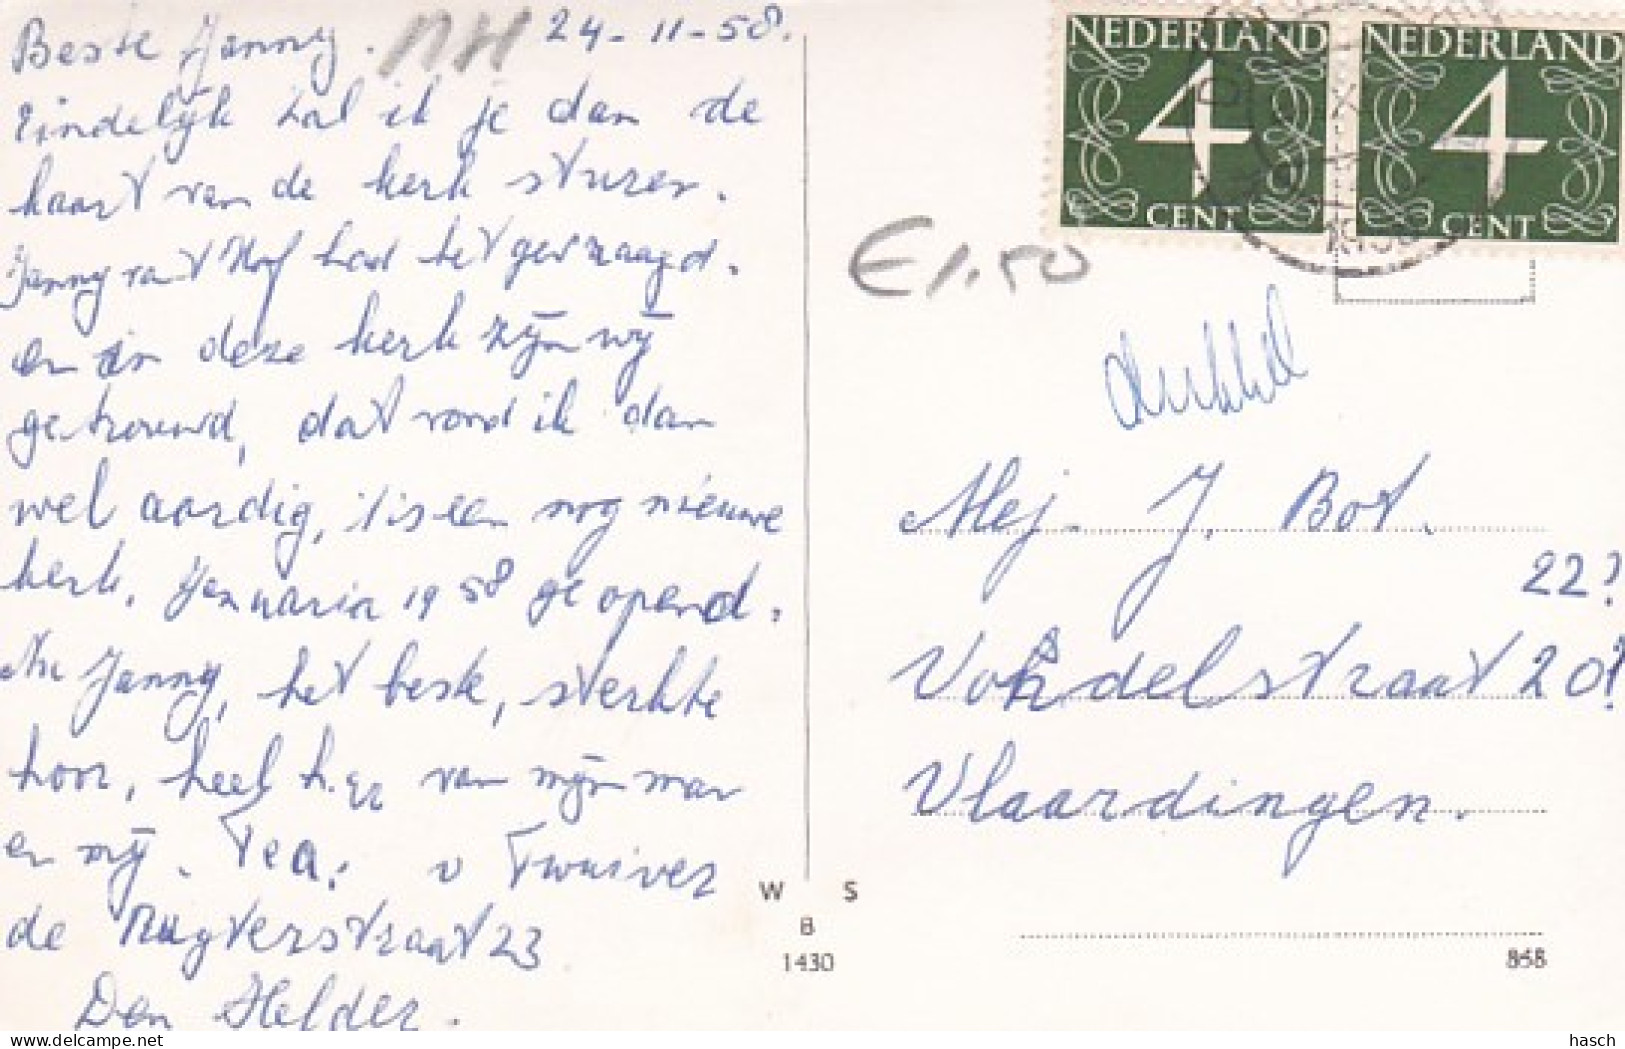 Beste Janny. NH 24-11-58.
Eindelijk zal ik je dan de
kaart van de kerk sturen.
Janny va 't Hof had het gevraagd.
en in deze kerk zijn wij
getrouwd, dat vond ik dan
wel aardig, 't is een nog nieuwe
kerk. Januarie 1958 geopend.
Nu Janny, het beste, sterkte
hoor, heel h. gr van mijn man
en mij. Tea. v Twuiver
de Ruyterstraat 23
Den Helder.
W S
B
1430
NEDERLAND
4
CENT
NEDERLAND
4
CENT
€1,50
dubbel
Mej. J. Bot.
22?
Vondelstraat 20?
Vlaardingen.
868
hasch
delcampe.net